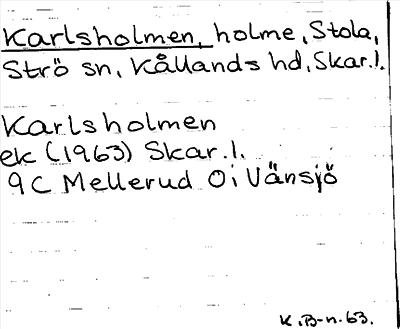 Karlsholmen, holme, Stola,
Strö sn, Kållands hd, Skar.l.
Karlsholmen
ek (1963) Skar.l.
9C Mellerud Oi Vänsjö
K.B-n. 63.